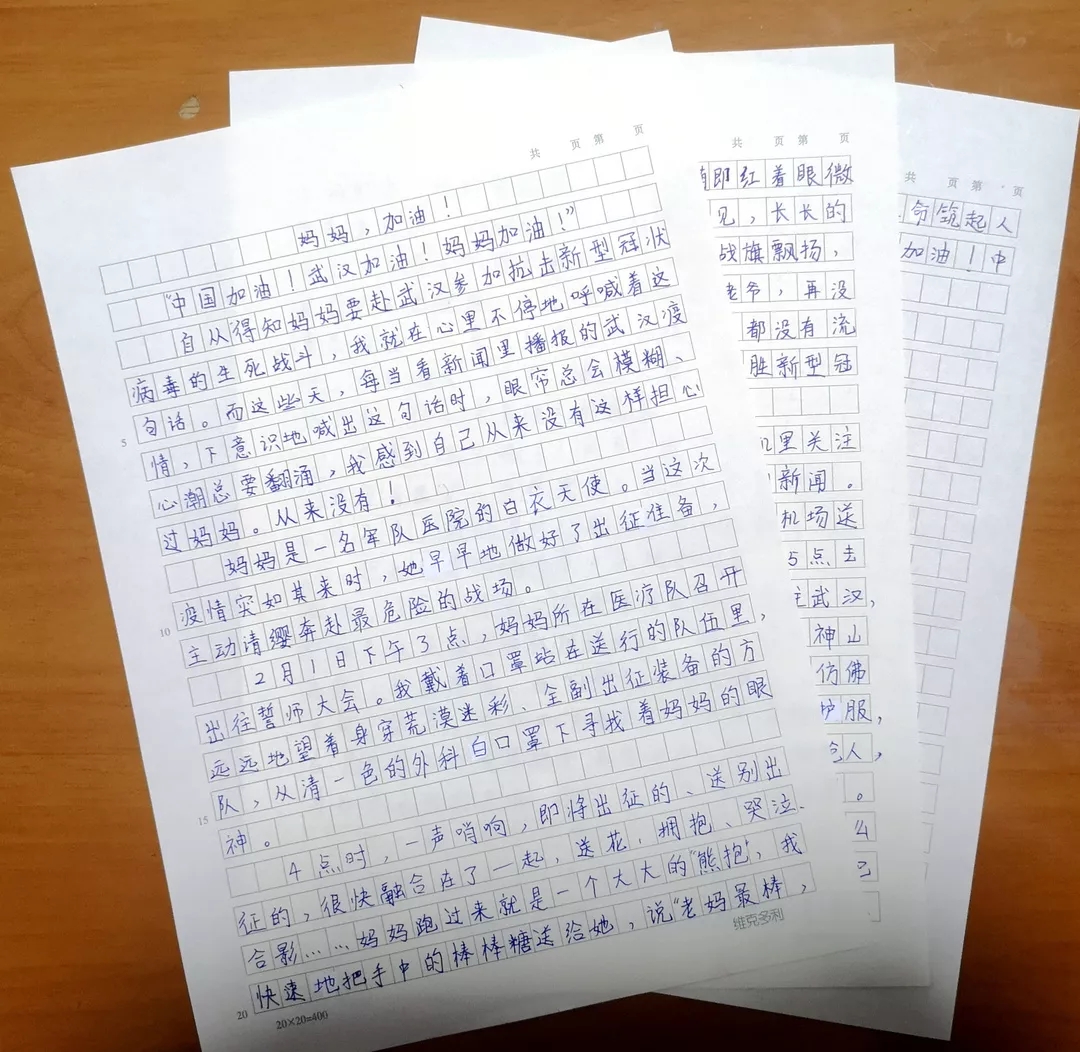 共 页 第 页
妈妈，加油！
“中国加油！武汉加油！妈妈加油！”
自从得知妈妈要赴武汉参加抗击新型冠状
病毒的生死战斗，我就在心里不停地呼喊着这
句话。而这些天，每当看新闻里播报的武汉疫
5
情，下意识地喊出这句话时，眼帘总会模糊、
心潮总要翻涌，我感到自己从来没有这样担心
过妈妈。从来没有！
妈妈是一名军队医院的白衣天使。当这次
疫情突如其来时，她早早地做好了出征准备，
10
主动请缨奔赴最危险的战场。
2月1日下午3点，妈妈所在医疗队召开
出往誓师大会。我戴着口罩站在送行的队伍里，
远远地望着身穿荒漠迷彩、全副出征装备的方
队，从清一色的外科白口罩下寻找着妈妈的眼
15
神。
4点时，一声哨响，即将出征的、送别出
征的，很快融合在了一起，送花，拥抱、哭泣、
合影……妈妈跑过来就是一个大大的“熊抱”，我
快速地把手中的棒棒糖送给她，说“老妈最棒，
20
20×20=400
维克多利
共 页 第 页
即红着眼微
见，长长的
战旗飘扬，
老爷，再没
都没有流
胜新型冠
里关注
新闻。
机场送
5点去
武汉，
神山
仿佛
服，
人，
。
共 页 第 页
命筑起人
加油！中